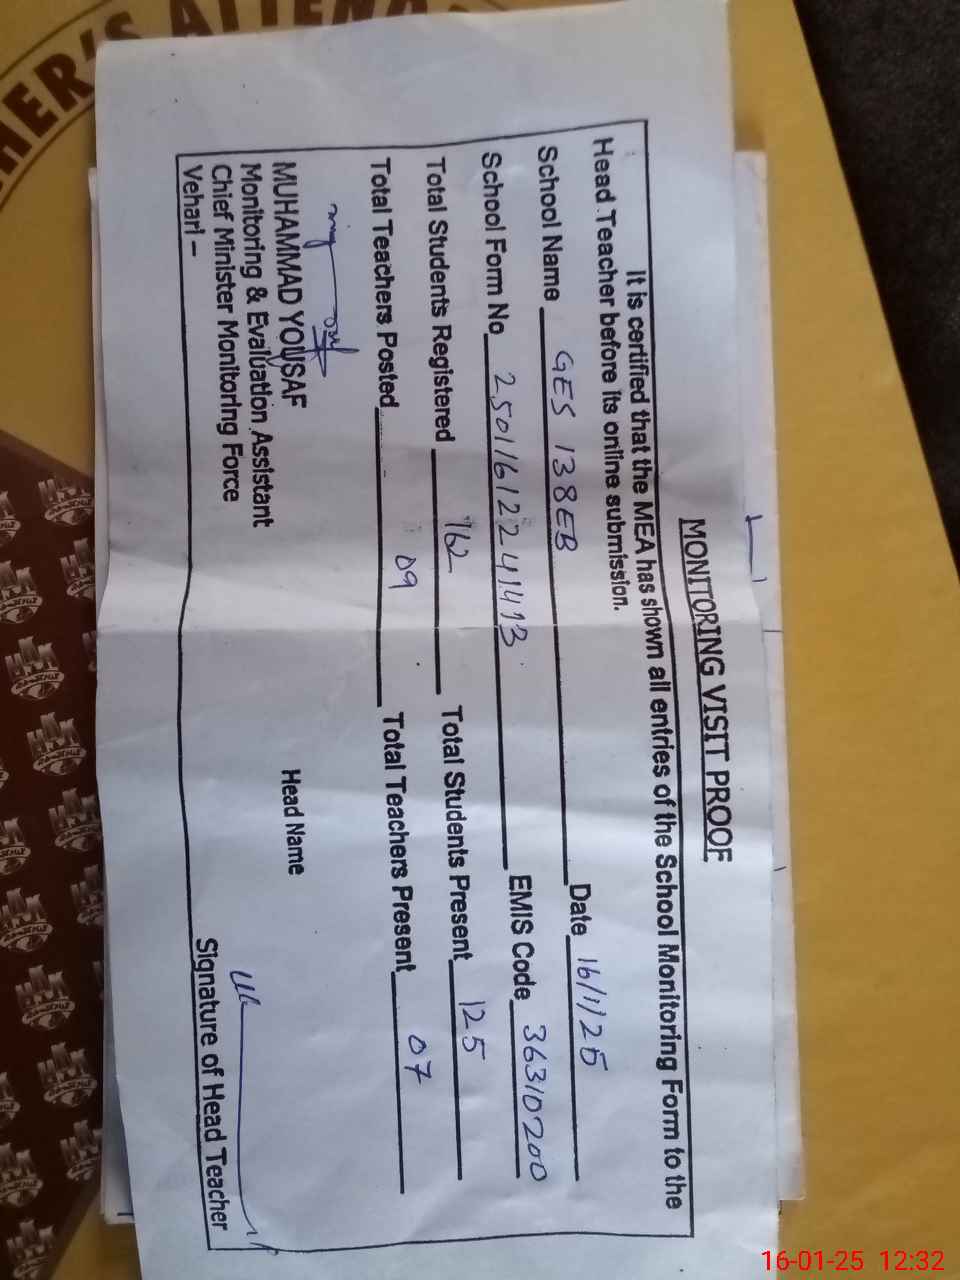 HER'S ATTENDA
MONITORING VISIT PROOF
It is certified that the MEA has shown all entries of the School Monitoring Form to the
Head Teacher before its online submission.
School Name GES 138EB Date 16/1/25
School Form No 25011612241413 EMIS Code 36310200
Total Students Registered 162 Total Students Present 125
Total Teachers Posted 09 Total Teachers Present 07
MUHAMMAD YOUSAF Head Name
Monitoring & Evaluation Assistant
Chief Minister Monitoring Force
Vehari –
Signature of Head Teacher
16-01-25 12:32